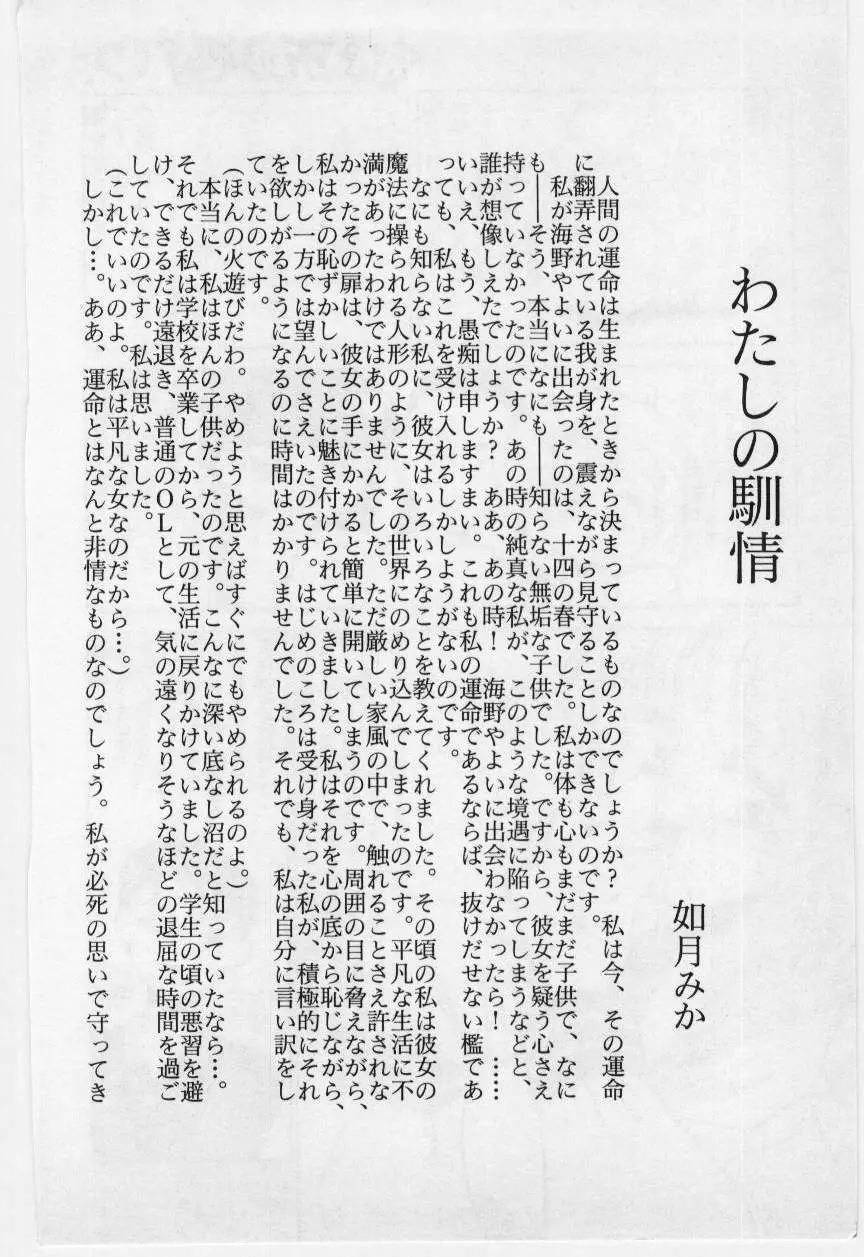 わたしの馴情
如月みか
人間の運命は生まれたときから決まっているものなのでしょうか?　私は今、その運命
に翻弄されている我が身を、震えながら見守ることしかできないのです。
私が海野やよいに出会ったのは、十四の春でした。私は体も心もまだまだ子供で、なに
も――そう、本当になにも――知らない無垢な子供でした。ですから、彼女を疑う心さえ
持っていなかったのです。あの時の純真な私が、このような境遇に陥ってしまうなどと、
誰が想像しえたでしょうか?　ああ、あの時!　海野やよいに出会わなかったら!　……
いいえ、もう、愚痴は申しますまい。これも私の運命であるならば、抜けだせない檻であ
っても、私はこれを受け入れるしかしようがないのです。
なにも知らない私に、彼女はいろいろなことを教えてくれました。その頃の私は彼女の
魔法に操られる人形のように、その世界にのめり込んでしまったのです。平凡な生活に不
満があったわけではありませんでした。ただ厳しい家風の中で、触れることさえ許されな
かったその扉は、彼女の手にかかると簡単に開いてしまうのです。周囲の目に脅えながら、
私はその恥ずかしいことに魅き付けられていきました。私はそれを心の底から恥じながら、
しかし一方では望んでさえいたのです。はじめのころは受け身だった私が、積極的にそれ
を欲しがるようになるのに時間はかかりませんでした。それでも、私は自分に言い訳をし
ていたのです。
(ほんの火遊びだわ。やめようと思えばすぐにでもやめられるのよ。)
本当に、私はほんの子供だったのです。こんなに深い底なし沼だと知っていたなら…。
それでも私は学校を卒業してから、元の生活に戻りかけていました。学生の頃の悪習を避
け、できるだけ遠退き、普通のＯＬとして、気の遠くなりそうなほどの退屈な時間を過ご
していたのです。私は思いました。
(これでいいのよ。私は平凡な女なのだから…。)
しかし…。ああ、運命とはなんと非情なものなのでしょう。私が必死の思いで守ってき